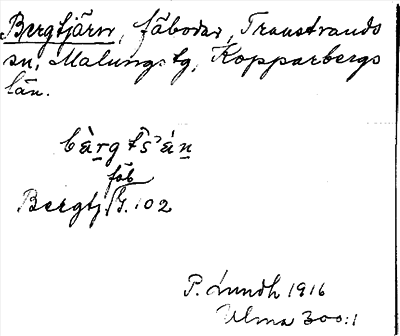 Bergtjärn, fäbodar, Transtrands
sn, Malungs tg, Kopparbergs
län.
bàrgts̑ʾáṉ
fäb
Bergtj. G. 102
P. Lundh 1916
Ulma 300:1